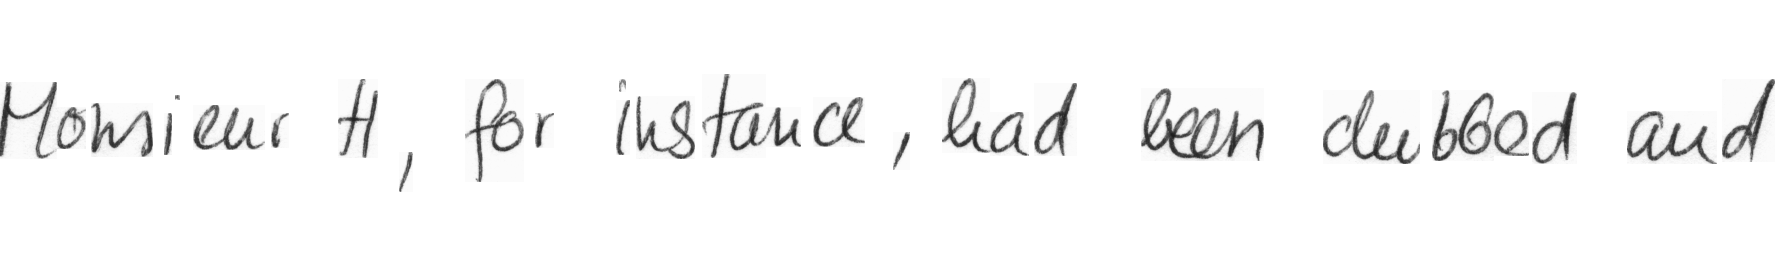 Monsieur H, for instance, had been dubbed and